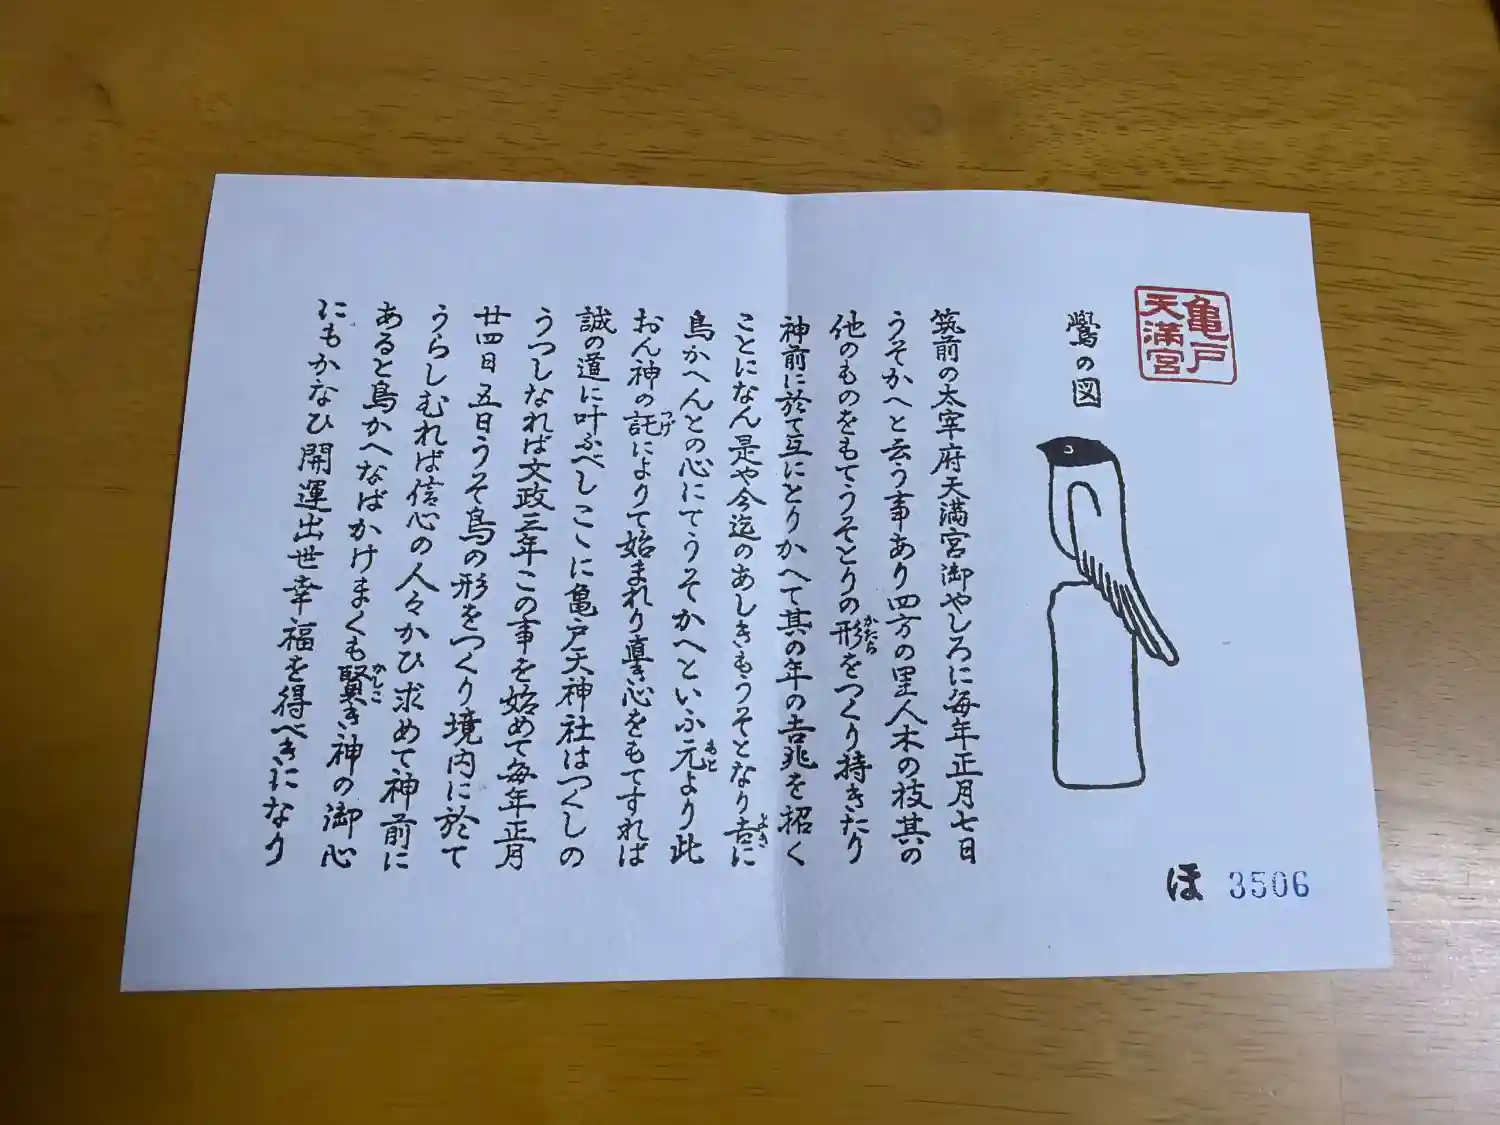 亀戸
天満宮
鷽の図
筑前の太宰府天満宮御やしろに毎年正月七日
うそかへと云う事あり四方の里人木の枝其の
他のものをもてうそとりの形をつくり持きたり
かたち
神前に於て互にとりかへて其の年の吉兆を招く
ことになん是や今迄のあしきもうそとなり吉に
よき
鳥かへんとの心にてうそかへといふ元より此
もと
おん神の託によりて始まれり直き心をもてすれば
つげ
誠の道に叶ふべしこゝに亀戸天神社はつくしの
うつしなれば文政三年この事を始めて毎年正月
廿四日五日うそ鳥の形をつくり境内に於て
うらしむれば信心の人々かひ求めて神前に
あると鳥かへなばかけまくも賢き神の御心
かしこ
にもかなひ開運出世幸福を得べきになり
ほ 3506